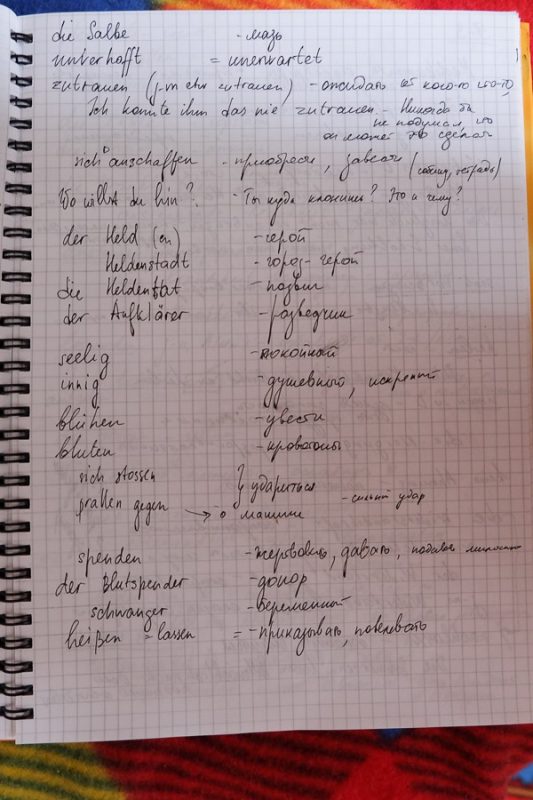 die Salbe - мазь
unverhofft = unerwartet
zutrauen (j-m etw zutrauen) - ожидать от кого-то что-то,
Ich konnte ihm das nie zutrauen - Никогда бы
не подумал, что
он может это сделать
sich anschaffen - приобрести, завести (собаку, тетрадь)
Wo willst du hin? - Ты куда клонишь? Это к чему?
der Held (en) - герой
Heldenstadt - город-герой
die Heldentat - подвиг
der Aufklärer - разведчик
seelig - покойный
innig - душевный, искренний
blühen - цвести
bluten - кровоточить
sich stossen } удариться
prallen gegen → о машину - сильный удар
spenden - жертвовать, давать, подавать милостыню
der Blutspender - донор
schwanger - беременный
heißen = lassen = - приказывать, повелевать